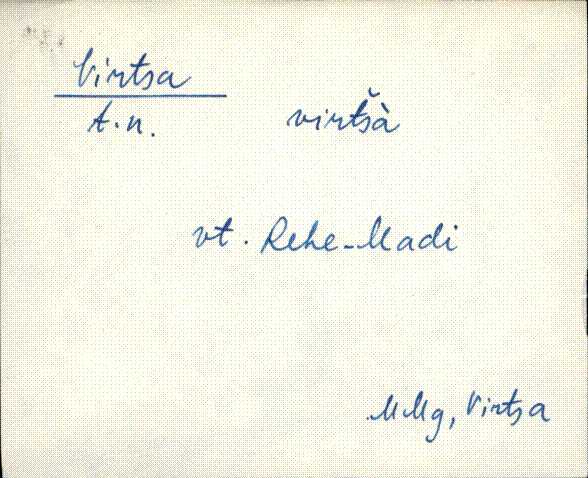 Virtsa
t.n. virtšà
vt. Rehe-Madi
MMg, Virtsa